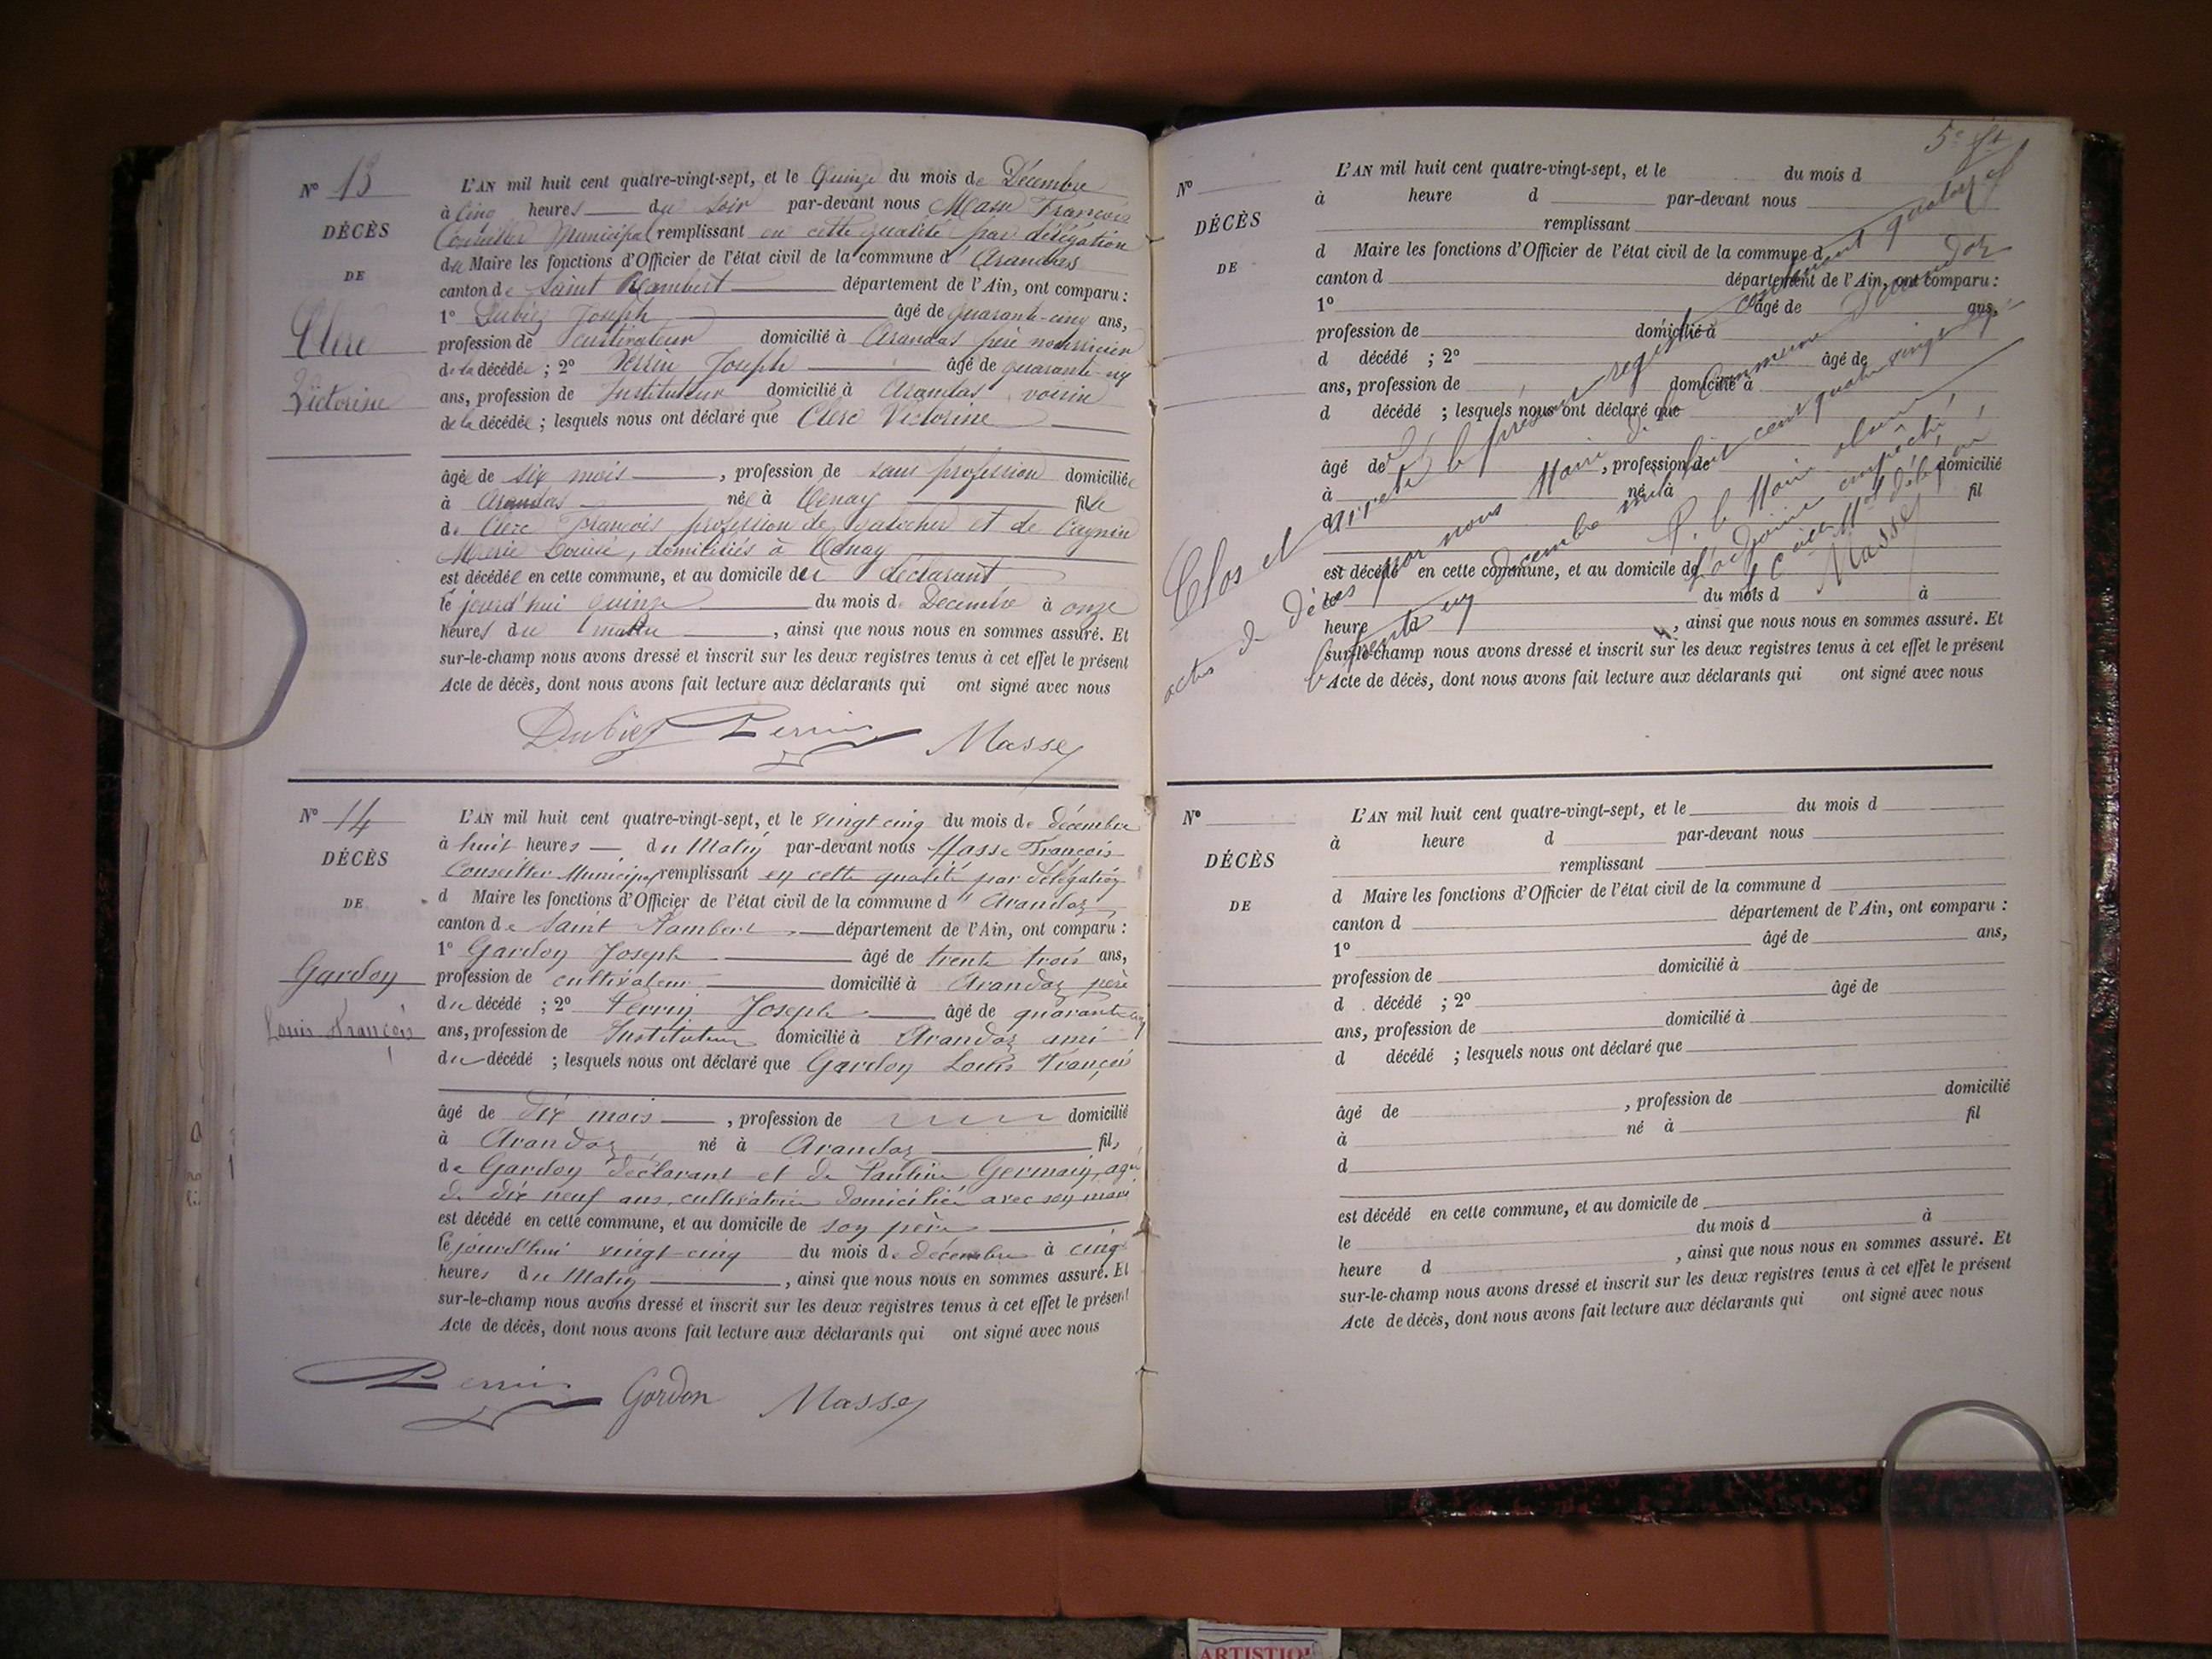 N° 13
DÉCÈS
DE
Clerc
Victorine
L'AN mil huit cent quatre-vingt-sept, et le Quinze du mois de Décembre
à Cinq heures du Soir par-devant nous Masse François
Conseiller Municipal remplissant en cette qualité par délégation
du Maire les fonctions d'Officier de l'état civil de la commune d'Arandas
canton de Saint Rambert département de l'Ain, ont comparu :
1° Dubiez Joseph âgé de quarante-cinq ans,
profession de cultivateur domicilié à Arandas père nourricier
de la décédée ; 2° Perrin Joseph âgé de quarante-cinq
ans, profession de Instituteur domicilié à Arandas voisin
de la décédée ; lesquels nous ont déclaré que Clerc Victorine
âgée de six mois , profession de sans profession domiciliée
à Arandas née à Tenay fille
de Clerc François profession de galocher et de Cagnin
Marie Louise, domiciliés à Tenay
est décédée en cette commune, et au domicile du déclarant
le jourd'hui quinze du mois de Décembre à onze
heures du matin , ainsi que nous nous en sommes assuré. Et
sur-le-champ nous avons dressé et inscrit sur les deux registres tenus à cet effet le présent
Acte de décès, dont nous avons fait lecture aux déclarants qui ont signé avec nous
Dubiez Perrin Masse
N° 14
DÉCÈS
DE
Gardon
Louis François
L'AN mil huit cent quatre-vingt-sept, et le vingt cinq du mois de décembre
à huit heures du Matin par-devant nous Masse François
Conseiller Municipal remplissant en cette qualité par délégation
d Maire les fonctions d'Officier de l'état civil de la commune d'Arandaz
canton de Saint Rambert département de l'Ain, ont comparu :
1° Gardon Joseph âgé de trente trois ans,
profession de cultivateur domicilié à Arandaz père
du décédé ; 2° Perrin Joseph âgé de quarante cinq
ans, profession de Instituteur domicilié à Arandaz ami
du décédé ; lesquels nous ont déclaré que Gardon Louis François
âgé de dix mois , profession de domicilié
à Arandaz né à Arandaz fils
de Gardon déclarant et de Pauline Germain, agée
de dix neuf ans, cultivatrice domiciliée avec son mari
est décédé en cette commune, et au domicile de son père
le jourd'hui vingt-cinq du mois de décembre à cinq
heures du Matin , ainsi que nous nous en sommes assuré. Et
sur-le-champ nous avons dressé et inscrit sur les deux registres tenus à cet effet le présent
Acte de décès, dont nous avons fait lecture aux déclarants qui ont signé avec nous
Perrin Gardon Masse
N°
DÉCÈS
DE
L'AN mil huit cent quatre-vingt-sept, et le du mois d
à heure d par-devant nous
remplissant
d Maire les fonctions d'Officier de l'état civil de la commune d
canton d département de l'Ain, ont comparu :
1° âgé de ans,
profession de domicilié à
d décédé ; 2° âgé de
ans, profession de domicilié à
d décédé ; lesquels nous ont déclaré que
âgé de , profession de domicilié
à né à fil
d
est décédé en cette commune, et au domicile de
le du mois d à
heure d , ainsi que nous nous en sommes assuré. Et
sur-le-champ nous avons dressé et inscrit sur les deux registres tenus à cet effet le présent
Acte de décès, dont nous avons fait lecture aux déclarants qui ont signé avec nous
Clos et arreté le présent registre contenant quatorze
actes de décès par nous Maire de la Commune d'Arandaz
le trente un décembre mil huit cent quatre vingt sept
P. le Maire absent,
l'adjoint empêché,
le Cons. Mal délégué
Masse
N°
DÉCÈS
DE
L'AN mil huit cent quatre-vingt-sept, et le du mois d
à heure d par-devant nous
remplissant
d Maire les fonctions d'Officier de l'état civil de la commune d
canton d département de l'Ain, ont comparu :
1° âgé de ans,
profession de domicilié à
d décédé ; 2° âgé de
ans, profession de domicilié à
d décédé ; lesquels nous ont déclaré que
âgé de , profession de domicilié
à né à fil
d
est décédé en cette commune, et au domicile de
le du mois d à
heure d , ainsi que nous nous en sommes assuré. Et
sur-le-champ nous avons dressé et inscrit sur les deux registres tenus à cet effet le présent
Acte de décès, dont nous avons fait lecture aux déclarants qui ont signé avec nous